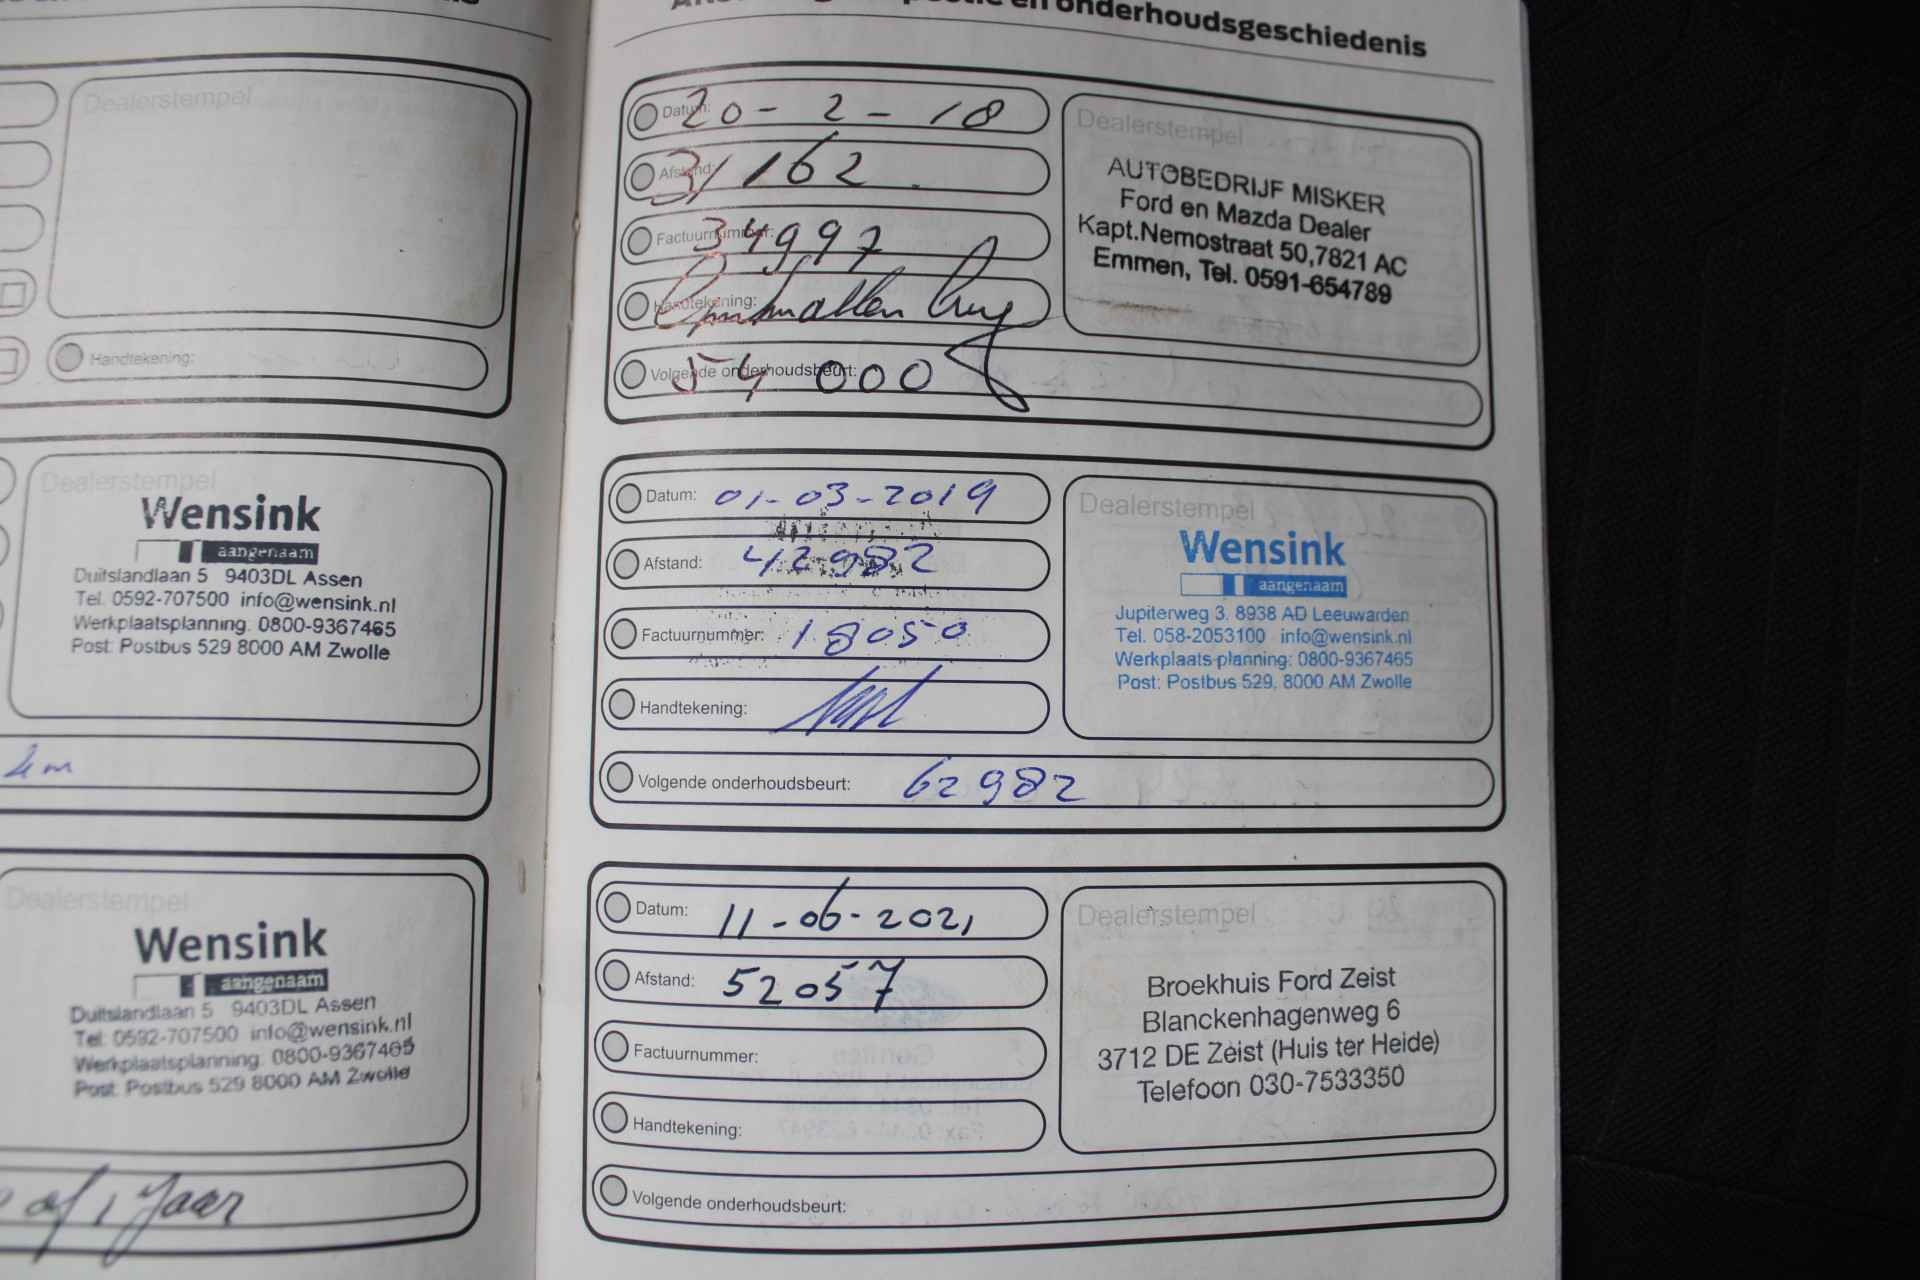 en onderhoudsgeschiedenis
Dealerstempel
Handtekening:
Dealerstempel
Wensink
aangenaam
Duitslandlaan 5 9403DL Assen
Tel. 0592-707500 info@wensink.nl
Werkplaatsplanning: 0800-9367465
Post: Postbus 529 8000 AM Zwolle
km
Dealerstempel
Wensink
aangenaam
Duitslandlaan 5 9403DL Assen
Tel: 0592-707500 info@wensink.nl
Werkplaatsplanning: 0800-9367465
Post: Postbus 529 8000 AM Zwolle
of 1 Jaar
Datum: 20 - 2 - 18
Afstand: 31162
Factuurnummer: 34997
Handtekening:
Volgende onderhoudsbeurt: 54 000
Dealerstempel
AUTOBEDRIJF MISKER
Ford en Mazda Dealer
Kapt.Nemostraat 50,7821 AC
Emmen, Tel. 0591-654789
Datum: 01-03-2019
Afstand: 42982
Factuurnummer: 18050
Handtekening:
Volgende onderhoudsbeurt: 62982
Dealerstempel
Wensink
aangenaam
Jupiterweg 3, 8938 AD Leeuwarden
Tel. 058-2053100 info@wensink.nl
Werkplaats planning: 0800-9367465
Post: Postbus 529, 8000 AM Zwolle
Datum: 11-06-2021
Afstand: 52057
Factuurnummer:
Handtekening:
Volgende onderhoudsbeurt:
Dealerstempel
Broekhuis Ford Zeist
Blanckenhagenweg 6
3712 DE Zeist (Huis ter Heide)
Telefoon 030-7533350